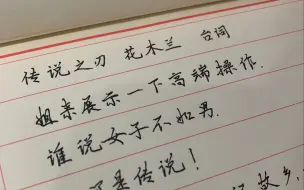 传说之刃 花木兰 台词
姐来展示一下高端操作.
谁说女子不如男.
是传说!
故乡.